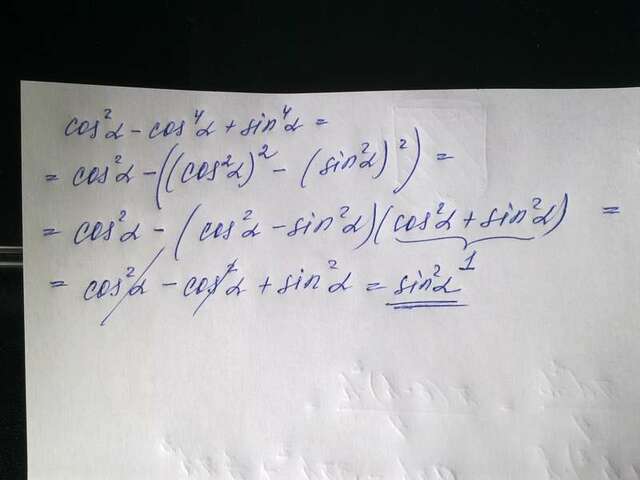 cos²α - cos⁴α + sin⁴α =
= cos²α - ((cos²α)² - (sin²α)²) =
= cos²α - (cos²α - sin²α)(cos²α + sin²α) =
1
= cos²α - cos²α + sin²α = sin²α